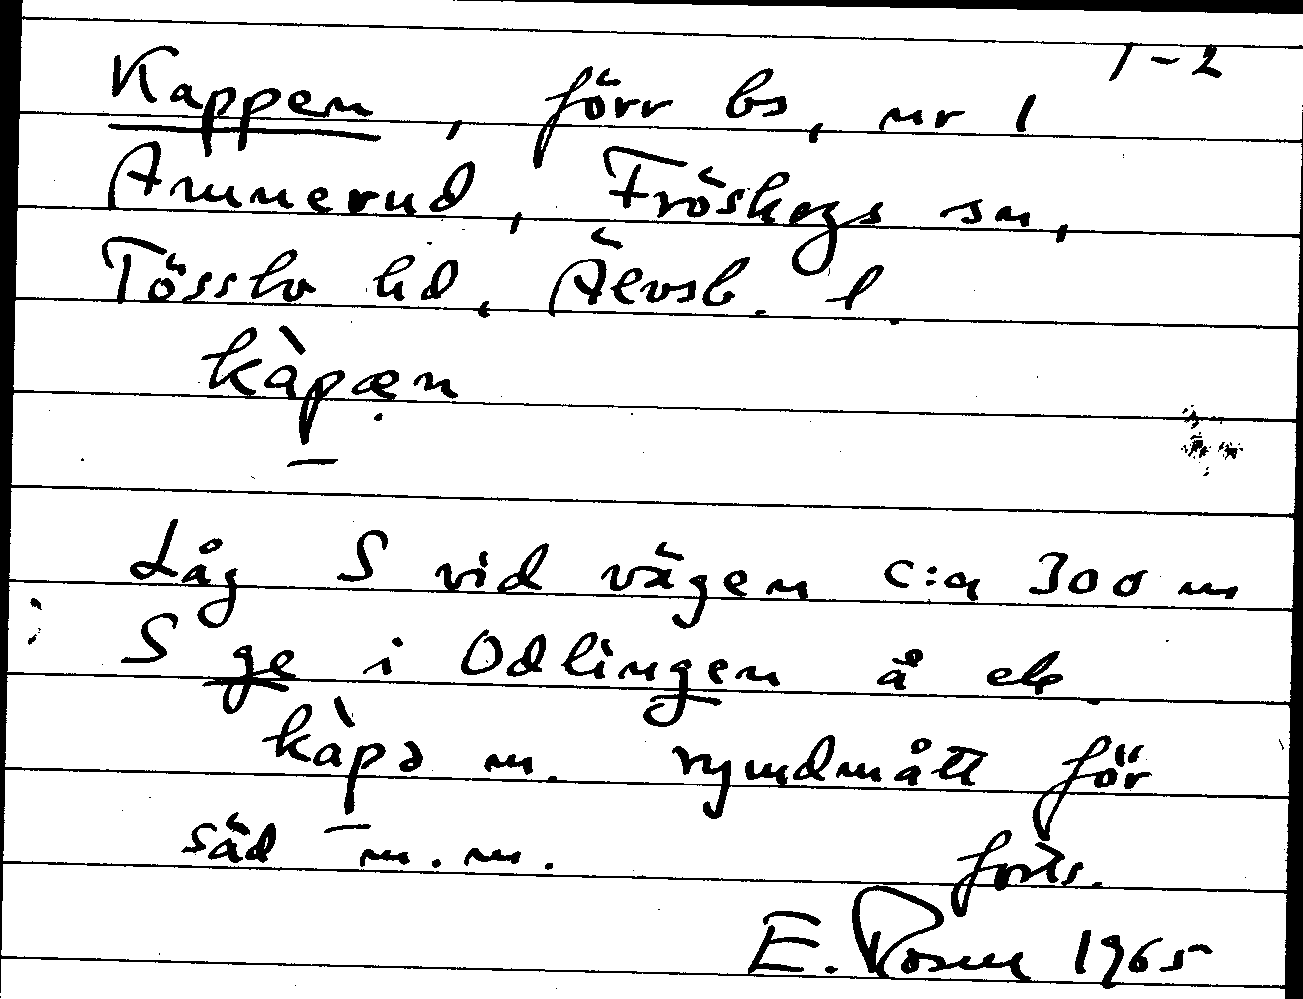 1-2
Kappen, förr bs, nr 1
Ammerud, Fröskogs sn,
Tössbo hd, Älvsb. l.
kàpæ̣n
Låg S vid vägen c:a 300 m
S ge i Odlingen å ek.
kàpə m. rymdmått för
säd m.m. forts.
E. Rosen 1965